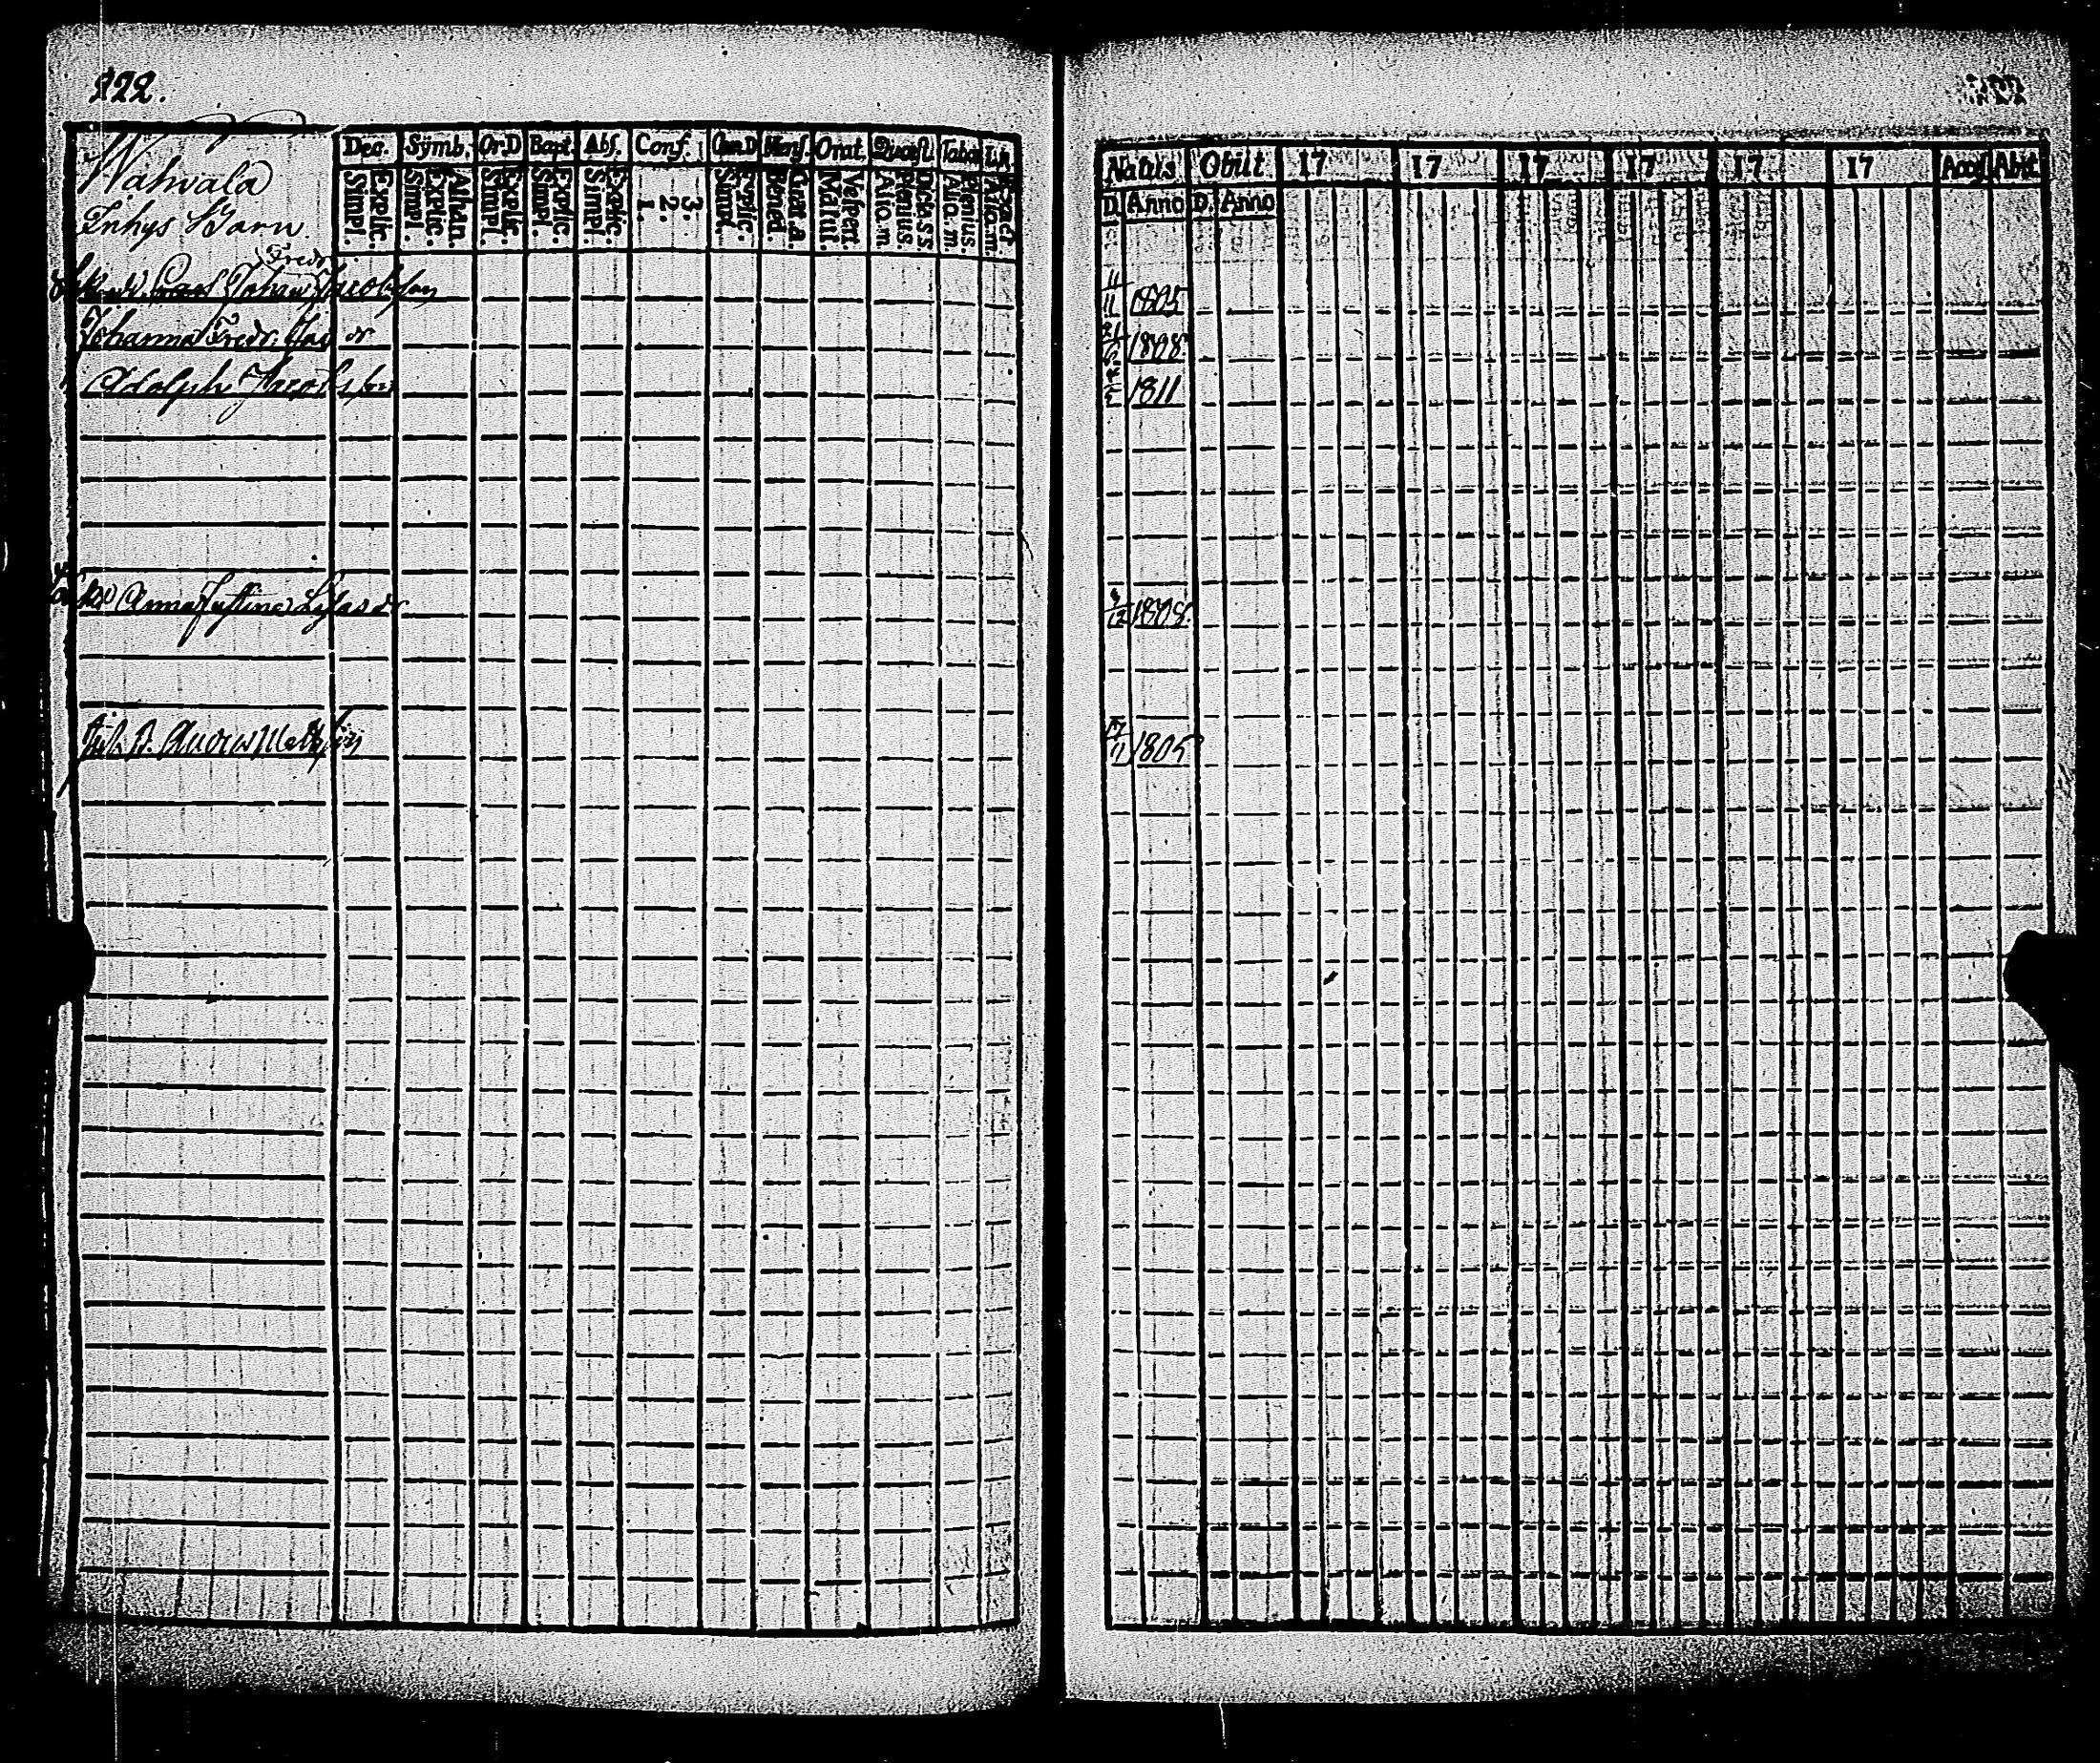 222.
Wahvala
Inhys Barn
Dec. Symb. Or.D Bapt. Abs. Conf. Cœn.D Mens. Orat. Quæst. Tabæ
Simpl. Explic. Simpl. Explic. Athan. Simpl. Explic. Simpl. Explic. Simpl. Explic. 1. 2. 3. Simpl. Explic. Bened. Grat.a. Matut. Vespert. Aliq.m. Plenius. Dict.s.s. Aliq.m. Plenius. Aliq.m. Exact.
Fredr
Carl Johan Jacobsson
Johanna Fredr. Jac dr
Adolph Jacobsson
Anna Justina
Natus Obiit 17 17 17 17 17 17 Access Abit
D. Anno D. Anno
11 1805
1808
1811
12 1808
11 1805